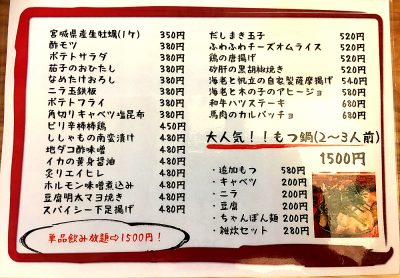 宮城県産生牡蠣(1ケ) 350円
酢モツ 380円
ポテトサラダ 380円
茄子のおひたし 380円
なめたけおろし 380円
ニラ玉鉄板 380円
ポテトフライ 380円
角切りキャベツ塩昆布 380円
ピリ辛棒棒鶏 450円
ししゃもの南蛮漬け 480円
地ダコ酢味噌 480円
イカの黄身醤油 480円
炙りエイヒレ 480円
ホルモン味噌煮込み 480円
豆腐明太マヨ焼き 480円
スパイシー下足揚げ 480円
単品飲み放題⇨1500円！
だしまき玉子 520円
ふわふわチーズオムライス 520円
鶏の唐揚げ 520円
砂肝の黒胡椒焼き 520円
海老と帆立の自家製薩摩揚げ 540円
海老と木の子のアヒージョ 580円
和牛ハツステーキ 680円
馬肉のカルパッチョ 680円
大人気！！もつ鍋(2〜3人前)
1500円
・追加もつ 580円
・キャベツ 200円
・ニラ 200円
・豆腐 200円
・ちゃんぽん麺 200円
・雑炊セット 280円